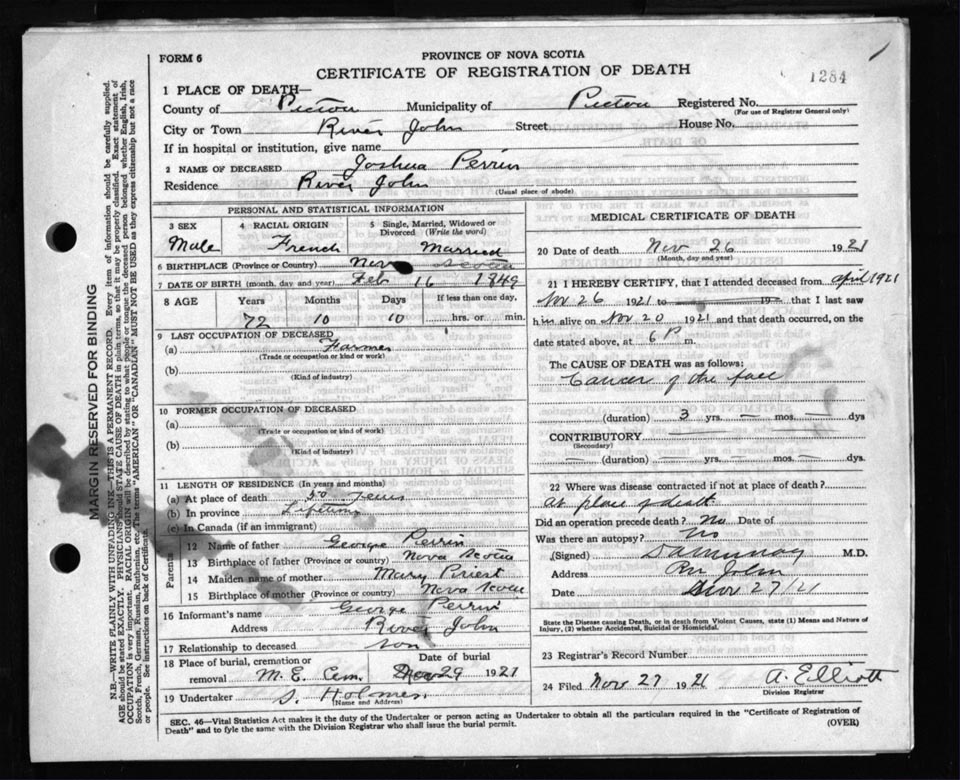 FORM 6
PROVINCE OF NOVA SCOTIA
CERTIFICATE OF REGISTRATION OF DEATH
1284
1 PLACE OF DEATH—
County of Pictou Municipality of Pictou Registered No.
(For use of Registrar General only)
City or Town River John Street House No.
If in hospital or institution, give name
2 NAME OF DECEASED Joshua Perrin
Residence River John
(Usual place of abode)
PERSONAL AND STATISTICAL INFORMATION
3 SEX 4 RACIAL ORIGIN 5 Single, Married, Widowed or Divorced (Write the word)
Male French Married
6 BIRTHPLACE (Province or Country) Nova Scotia
7 DATE OF BIRTH (month, day and year) Feb 16 1849
8 AGE Years Months Days If less than one day,
72 10 10 hrs. or min.
9 LAST OCCUPATION OF DECEASED
(a) Farmer
(Trade or occupation or kind or work)
(b)
(Kind of industry)
10 FORMER OCCUPATION OF DECEASED
(a)
(Trade or occupation or kind of work)
(b)
(Kind of industry)
11 LENGTH OF RESIDENCE (In years and months)
(a) At place of death 50 years
(b) In province Lifetime
(c) In Canada (if an immigrant)
Parents
12 Name of father George Perrin
13 Birthplace of father (Province or country) Nova Scotia
14 Maiden name of mother Mary Priest
15 Birthplace of mother (Province or country) Nova Scotia
16 Informant's name George Perrin
Address River John
17 Relationship to deceased son
18 Place of burial, cremation or removal M.E. Cem. Date of burial Nov 29 1921
19 Undertaker S. Holmes
(Name and Address)
MEDICAL CERTIFICATE OF DEATH
20 Date of death Nov 26 1921
(Month, day and year)
21 I HEREBY CERTIFY, that I attended deceased from April 1921
Nov 26 1921 to 192 that I last saw
him alive on Nov 20 1921 and that death occurred, on the
date stated above, at 6 P m.
The CAUSE OF DEATH was as follows:
Cancer of the face
(duration) 3 yrs. — mos. — dys
CONTRIBUTORY
(Secondary)
(duration) — yrs. — mos. — dys
22 Where was disease contracted if not at place of death?
At place of death
Did an operation precede death? No Date of
Was there an autopsy? No
(Signed) M.D.
Address Riv John
Date Nov 27/21
State the Disease causing Death, or in death from Violent Causes, state (1) Means and Nature of
Injury, (2) whether Accidental, Suicidal or Homicidal.
23 Registrar's Record Number
24 Filed Nov 27 1921 A. Elliott
Division Registrar
SEC. 46—Vital Statistics Act makes it the duty of the Undertaker or person acting as Undertaker to obtain all the particulars required in the "Certificate of Registration of
Death" and to fyle the same with the Division Registrar who shall issue the burial permit.
(OVER)
MARGIN RESERVED FOR BINDING
N.B.—WRITE PLAINLY WITH UNFADING INK—THIS IS A PERMANENT RECORD. Every item of information should be carefully supplied.
AGE should be stated EXACTLY. PHYSICIANS should STATE CAUSE OF DEATH in plain terms, so that it may be properly classified. Exact statement of
OCCUPATION is very important. RACIAL ORIGIN will be described by stating to what people or tongue the deceased person belonged whether English, Irish,
Scotch, French, German, Russian, Ruthenian, etc. The terms "AMERICAN" OR "CANADIAN" MUST NOT BE USED as they express citizenship but not a race
or people. See instructions on back of Certificate.